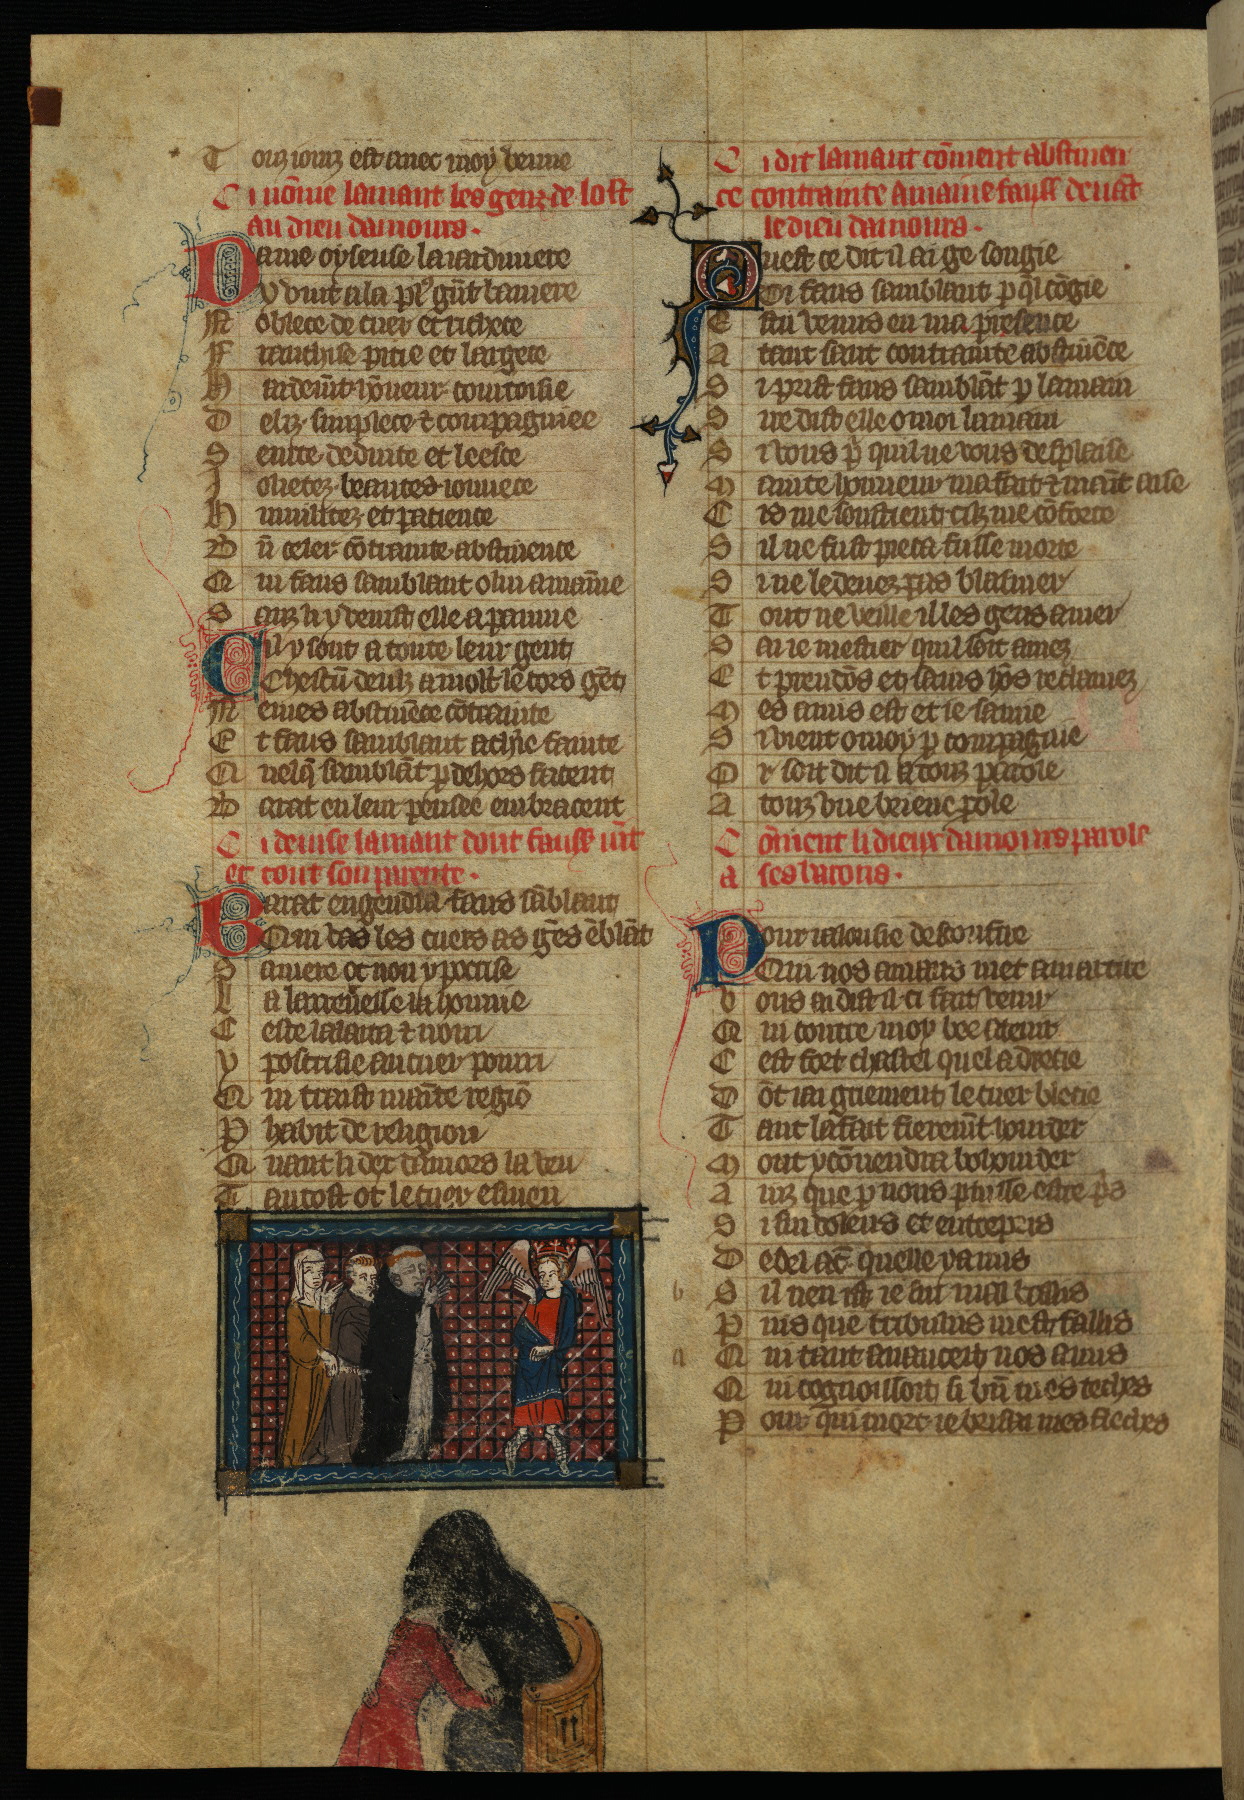 T ouz iourz est auec moy brune
C i nōme lamant les genz de lost
au dieu damours.
Dame oyseuse la iardiniere
y vint a la plꝰ gñt baniere
N oblece de cuer et richece
F ranchise pitie et largece
H ardemēt hōneur courtoisie
D eliz simplece ⁊ compagniee
S eurte deduite et leesce
J olietez beautes ionnece
H umilitez et patience
B ñ celer cōtrainte abstinence
Q ui faus samblant o lui amaīne
S anz li y venist elle a paine
Cil y sont a toute leur gent
Chascū deulz a molt le cors gēt
M emes abstinēce cōtrainte
E t faus samblant a chie fainte
Q uelq̄ samblāt p dehors facent
B arat en leur pensee embracent
C i deuise lamant dont fauss uīt
et tout son parente.
Barat engendra faus sāblant
Qui vas les cuers as gēs ēblāt
S a mere ot non ypocrisie
L a larrenesse la honnie
C este lalaita ⁊ norri
Y pocrisie au cuer pourri
Q ui traist mainte regiō
P habit de religion
Q uant li dex damors la veu
T antost ot le cuer esmeu
C i dit lamant cōment abstinen
ce contrainte amaine fauss deuāt
le dieu damours.
Quest ce dit il ai ge songie
Di faus samblant p q̄l cōgie
E s tu venus en ma presence
A tant saut contrainte abstinēce
S i prist faus samblāt p la main
S ire dist elle o moi lamain
S i vous p̄ quil ne vous desplaise
M ainte honneur ma fait ⁊ maīt aise
C is me soustient cilz me cōforte
S il ne fust pieca fusse morte
S i ne le deuez pas blasmer
T out ne veille il les gens amer
S ai ie mestier quil soit amez
E t preudōs et sains hōs reclamez
M es amis est et ie samie
S i vient o moy p compagnie
O r soit dit il a touz parole
A touz vne brieue pole
C ōment li dieux damours parole
a ses barons.
Pour ialousie desconfire
Qui nos amans met a martire
V ous ai dist il ci fait venir
Q ui contre moy bee a tenir
C est fort chastel quel a drecie
D ōt iai griement le cuer blecie
T ant la fait fierement hourder
M out y cōuendra bohourder
A inz que p nous puisse estre p̄s
S i sui dolens et entrepris
D e bel ac̄ quelle y a mis
S il nen ist ie sui mal baillis
P uis que tribulus mest fallis
Q ui tant auancoit nos amis
Q ui cognoissoit si bñ tres teches
P our q̄ui mort ie brisai mes fleches